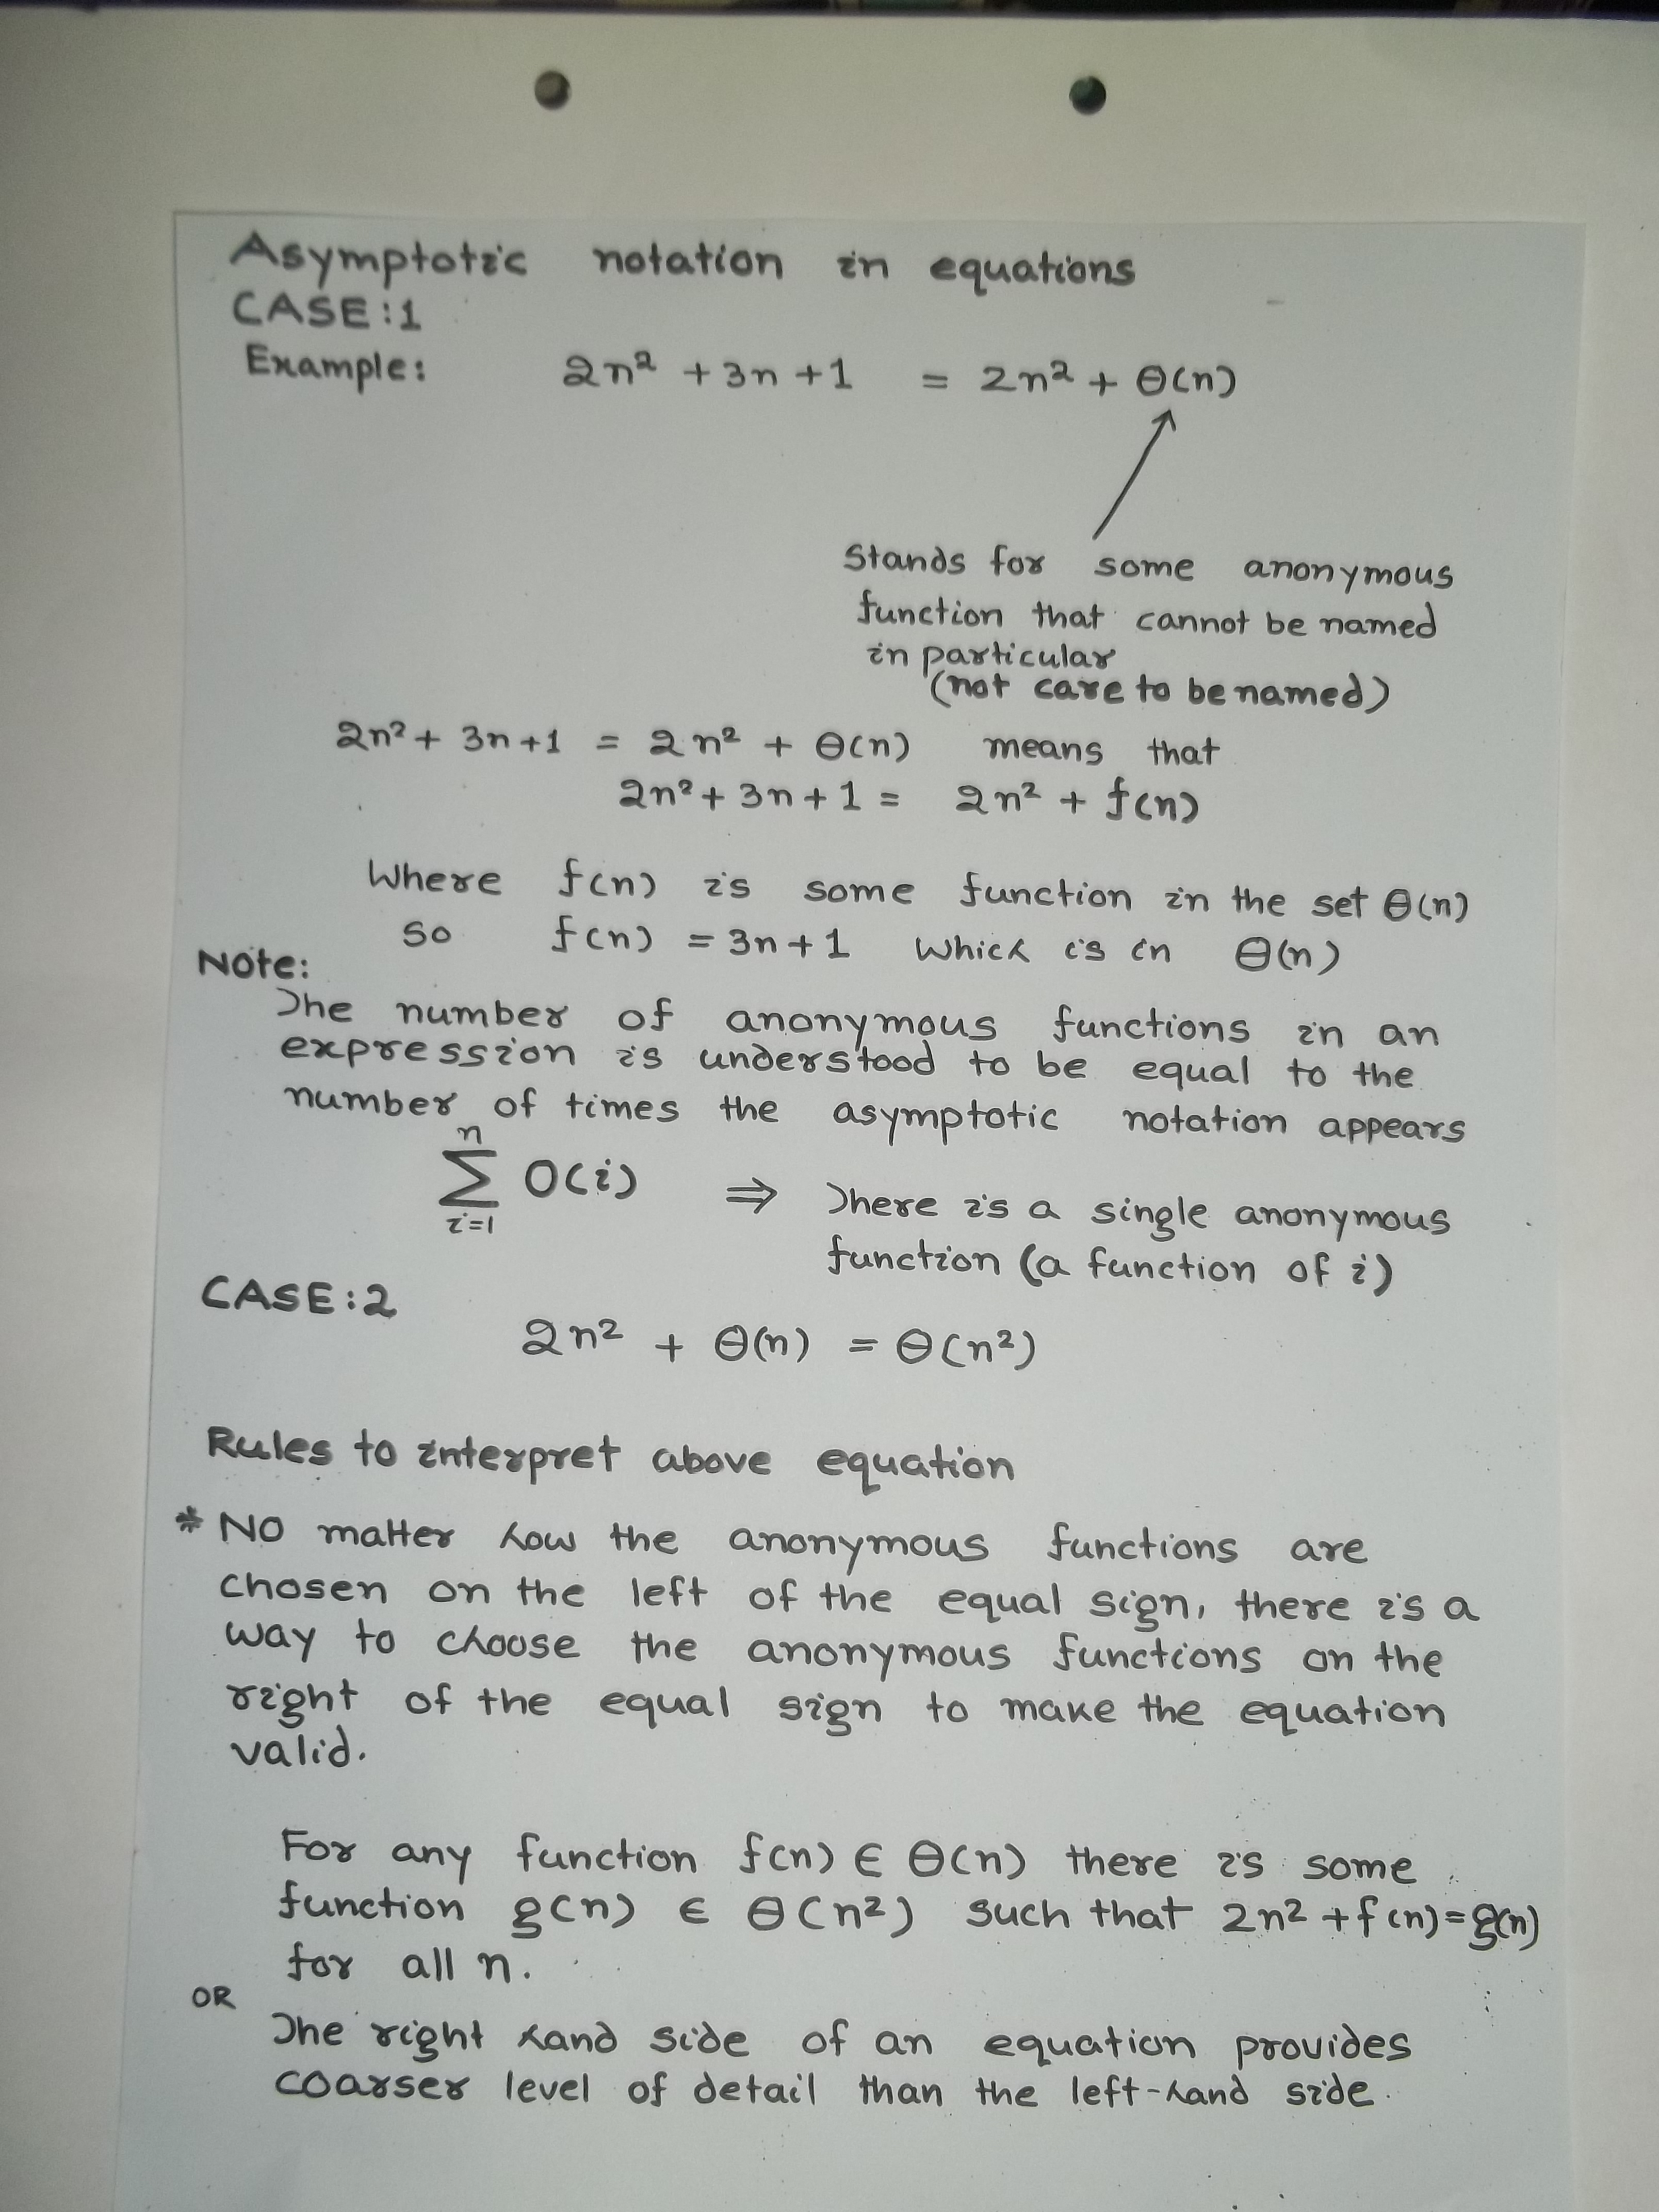 Asymptotic notation in equations
CASE:1
Example: 2n² + 3n + 1 = 2n² + Θ(n)
Stands for some anonymous
function that cannot be named
in particular
(not care to be named)
2n² + 3n + 1 = 2n² + Θ(n) means that
2n² + 3n + 1 = 2n² + f(n)
Where f(n) is some function in the set Θ(n)
so f(n) = 3n + 1 which is in Θ(n)
Note:
The number of anonymous functions in an
expression is understood to be equal to the
number of times the asymptotic notation appears
n
∑ O(i) ⇒ There is a single anonymous
i=1
function (a function of i)
CASE:2
2n² + Θ(n) = Θ(n²)
Rules to interpret above equation
* NO matter how the anonymous functions are
chosen on the left of the equal sign, there is a
way to choose the anonymous functions on the
right of the equal sign to make the equation
valid.
For any function f(n) ∈ Θ(n) there is some
function g(n) ∈ Θ(n²) such that 2n² + f(n) = g(n)
for all n.
OR
The right hand side of an equation provides
coarser level of detail than the left-hand side.